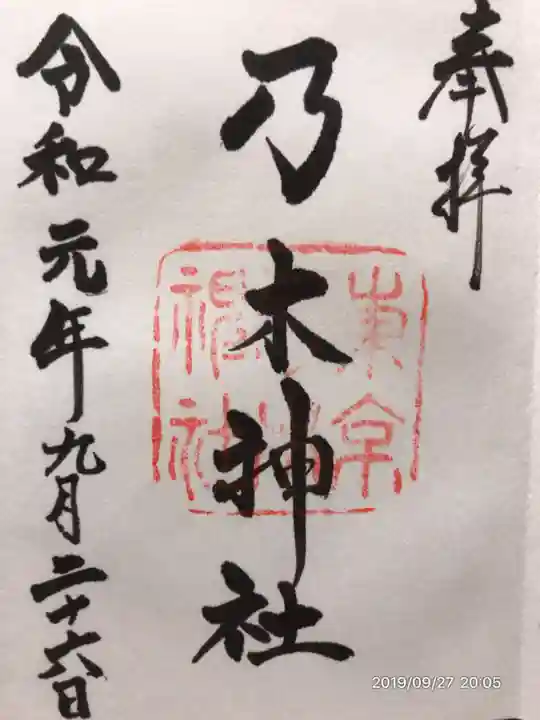 奉拝
乃木神社
令和元年九月二十六日
2019/09/27 20:05